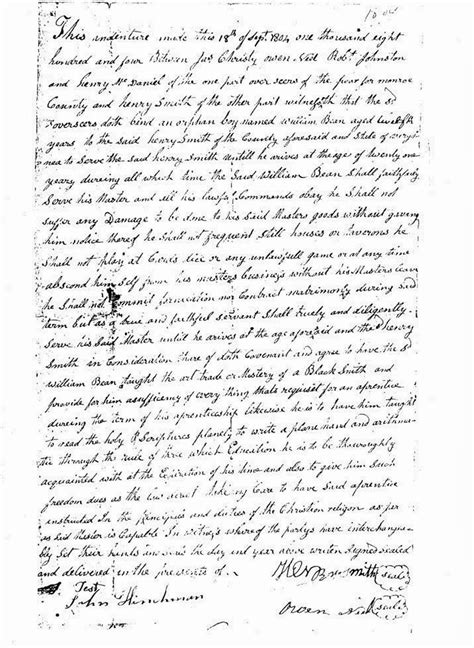 This indenture made this 18th of Sept. 1804 one thousand eight
hundred and four Between Jas Christy Owen Neel Robt Johnston
and henry McDaniel of the one part over seers of the poor for monroe
County and henry Smith of the other part witnesseth that the sd
overseers doth bind an orphan boy named william Bean aged
years to the said henry Smith of the County aforesaid and State of
to Serve the said henry Smith untill he arrives at the age of twenty one
years dureing all which time the Said William Bean Shall faithfully
Serve his Master and all his lawfull Commands obay he Shall not
suffer any Damage to be done to his Said Masters goods without
him notice thereof he Shall not frequent Still houses or taverons he
Shall not play at Cards dice or any unlawfull game or at any time
abscond himself from his masters business without his Masters leave
he Shall not Commit fornication nor Contract matrimony during said
term but as a true and faithful servant Shall truely and diligently
Serve his Said Master until he arrives at the age aforesaid and the sd henry
Smith in Consideration there of doth Covenant and agree to have the sd
William Bean taught the art trade or Mistery of a Black Smith and
provide for him a sufficiency of every thing thats requisit for an aprentice
dureing the term of his aprenticeship likewise he is to have him taught
to read the holy Scriptures planely to write a plane hand and arithma
tic through the rule of three which Education he is to be thoroughly
acquainted with at the Expiration of his time and also to give him Such
freedom dues as the law taking Care to have said aprentice
instructed In the principles and duties of the Christian religion as far
as said Master is Capable In witness whereof the partys have interchangea
bly Set their hands and the day and year above writen Signed sealed
and delivered in the presents of
Test
Henry Smith seal
John Hinchman
Owen Neel seal